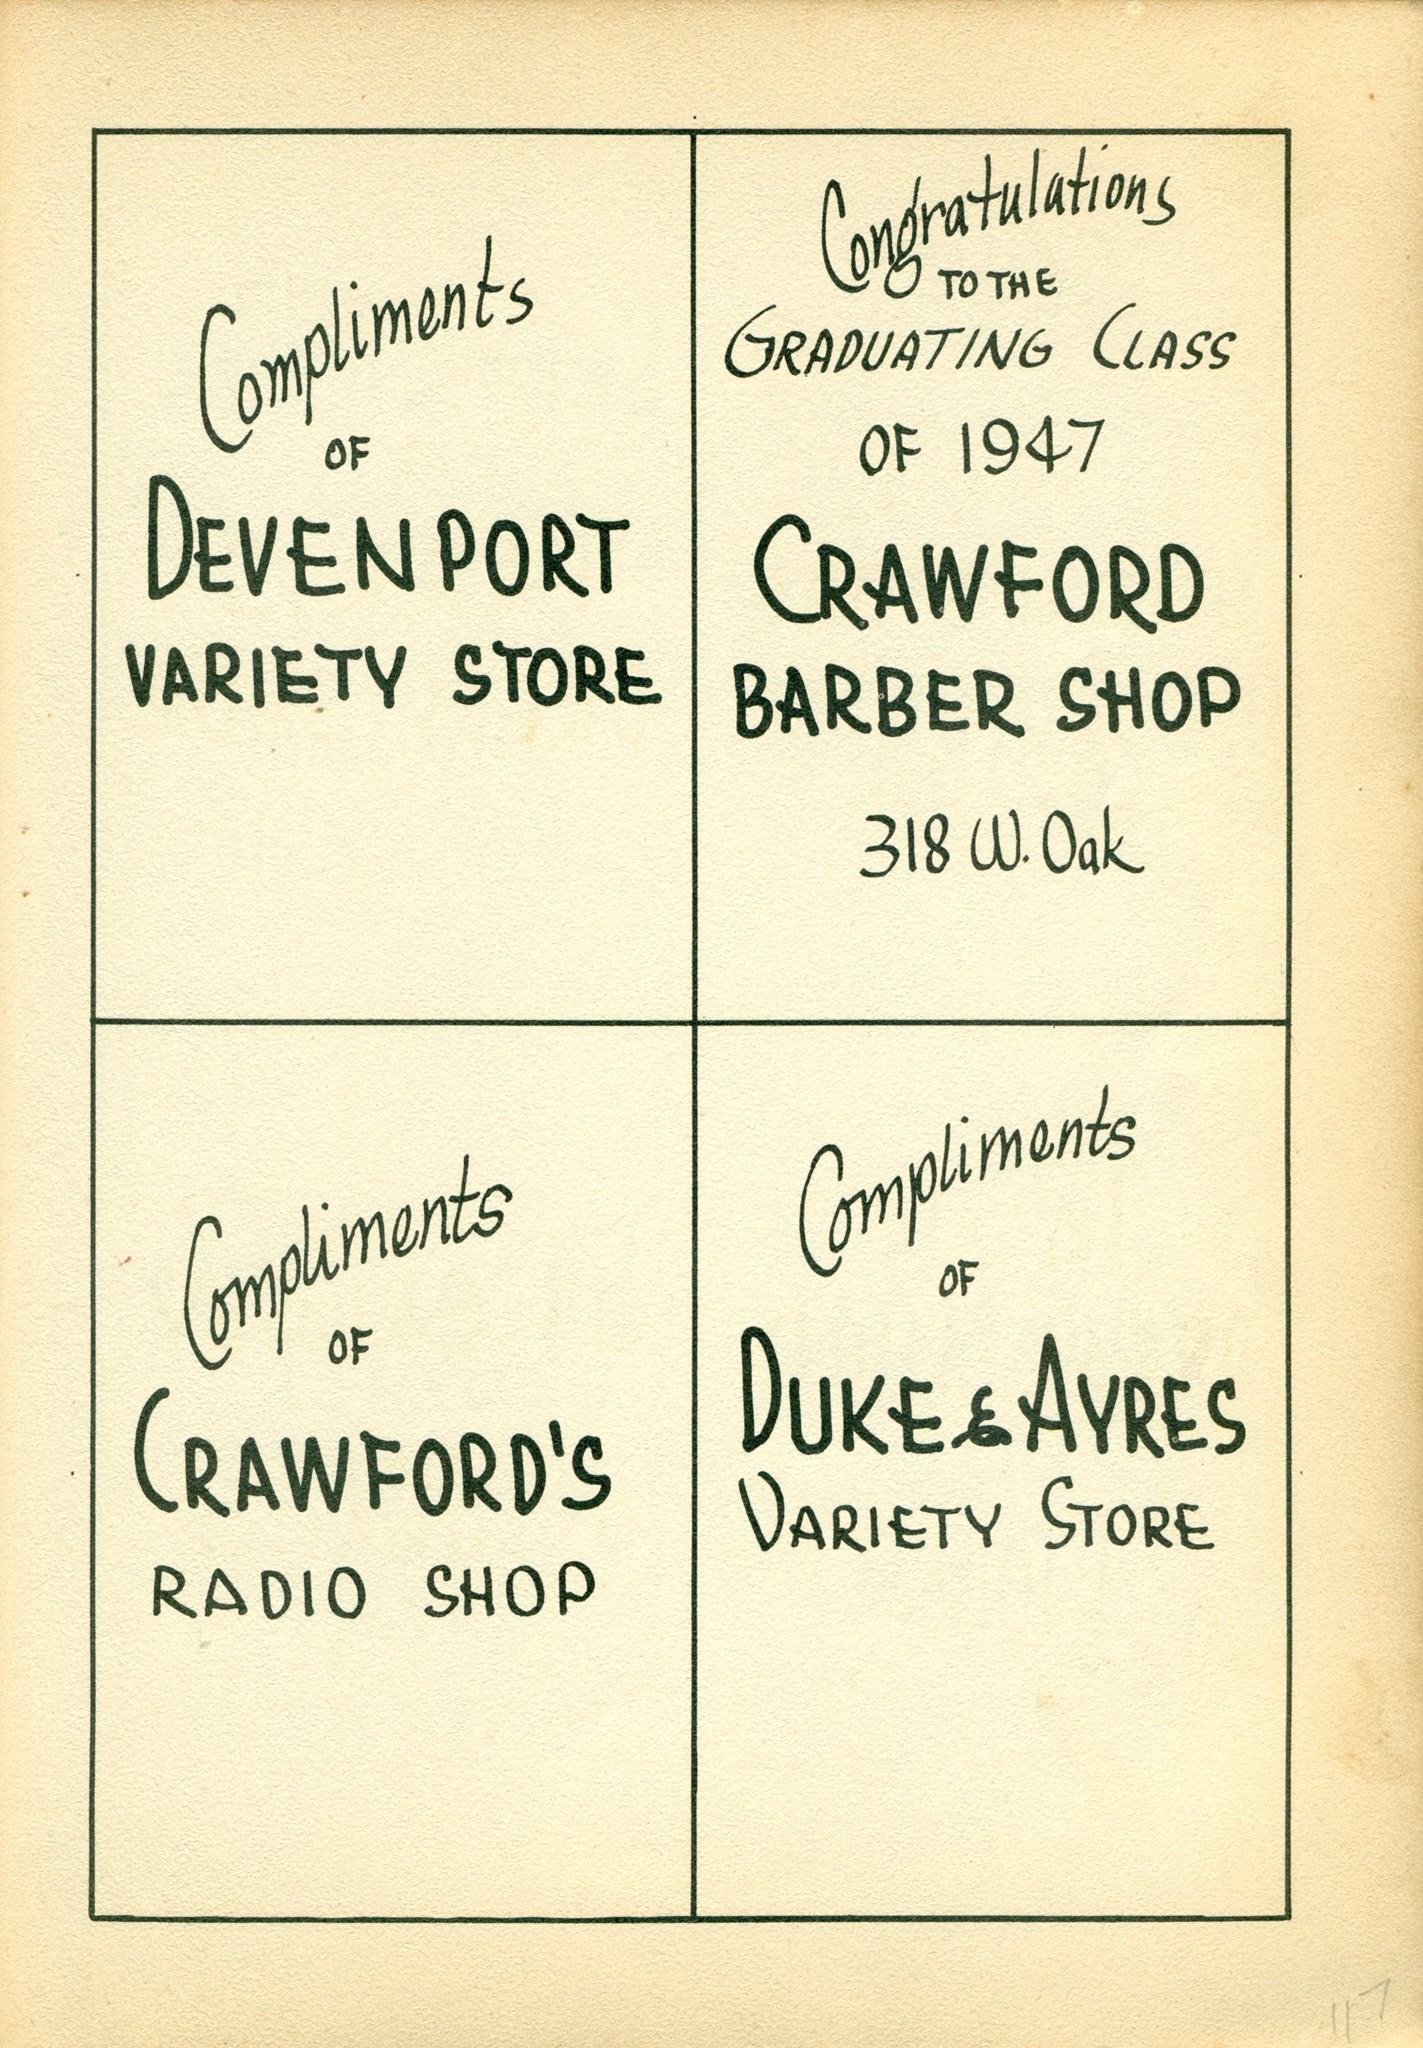 Compliments
OF
DEVENPORT
VARIETY STORE
Congratulations
TO THE
GRADUATING CLASS
OF 1947
CRAWFORD
BARBER SHOP
318 W. Oak
Compliments
OF
CRAWFORD'S
RADIO SHOP
Compliments
OF
DUKE & AYRES
VARIETY STORE
117